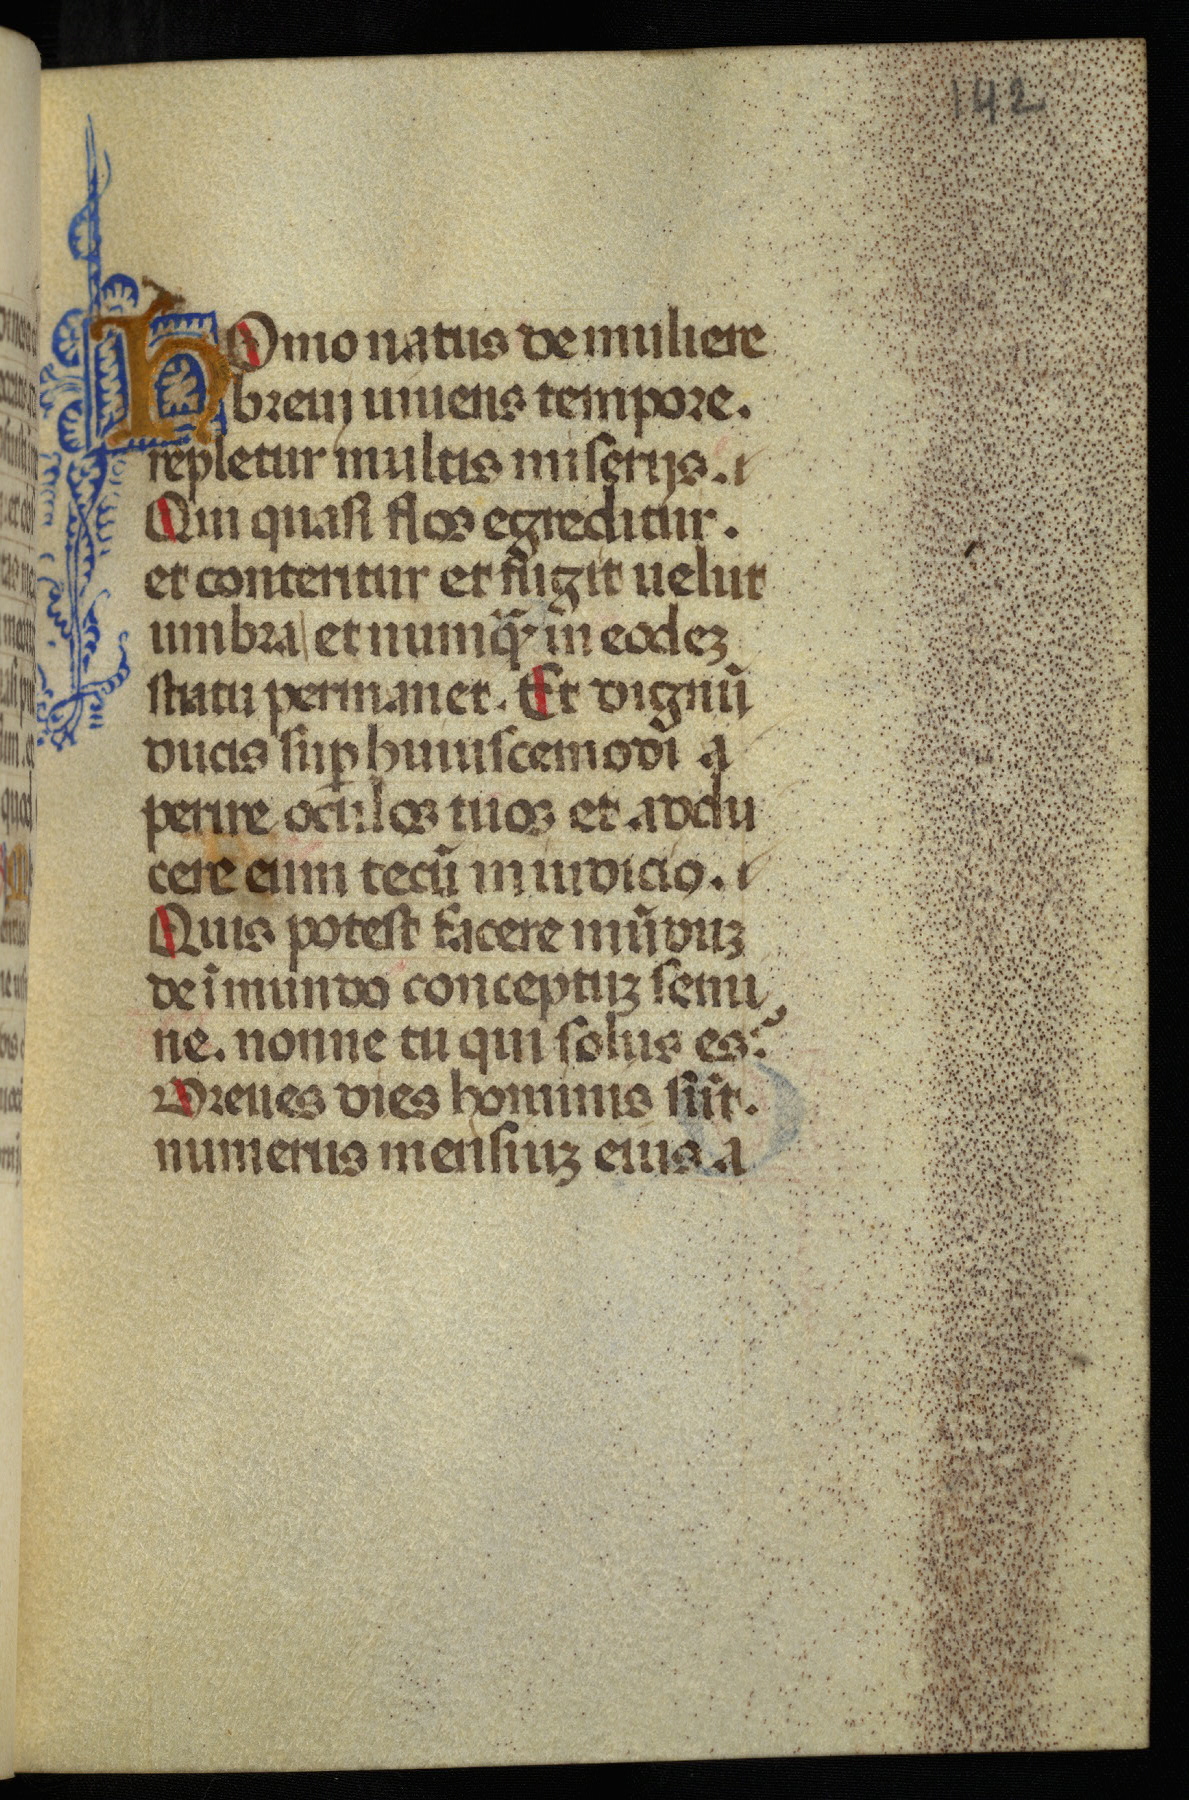 142
hOmo natus de muliere
breui uiuens tempore.
repletur multis miserijs.
Qui quasi flos egreditur.
et conteritur et fugit uelut
umbra et numq̃ in eodeз
statu permanet. Et dignũ
ducis sup̱ huiuscemodi a
perire oculos tuos et addu
cere eum tecũ in iudicio.
Quis potest facere mũduз
de ĩmundo conceptuз semi
ne. nonne tu qui solus es?
Breues dies hominis sũt.
numerus mensiuз eius a